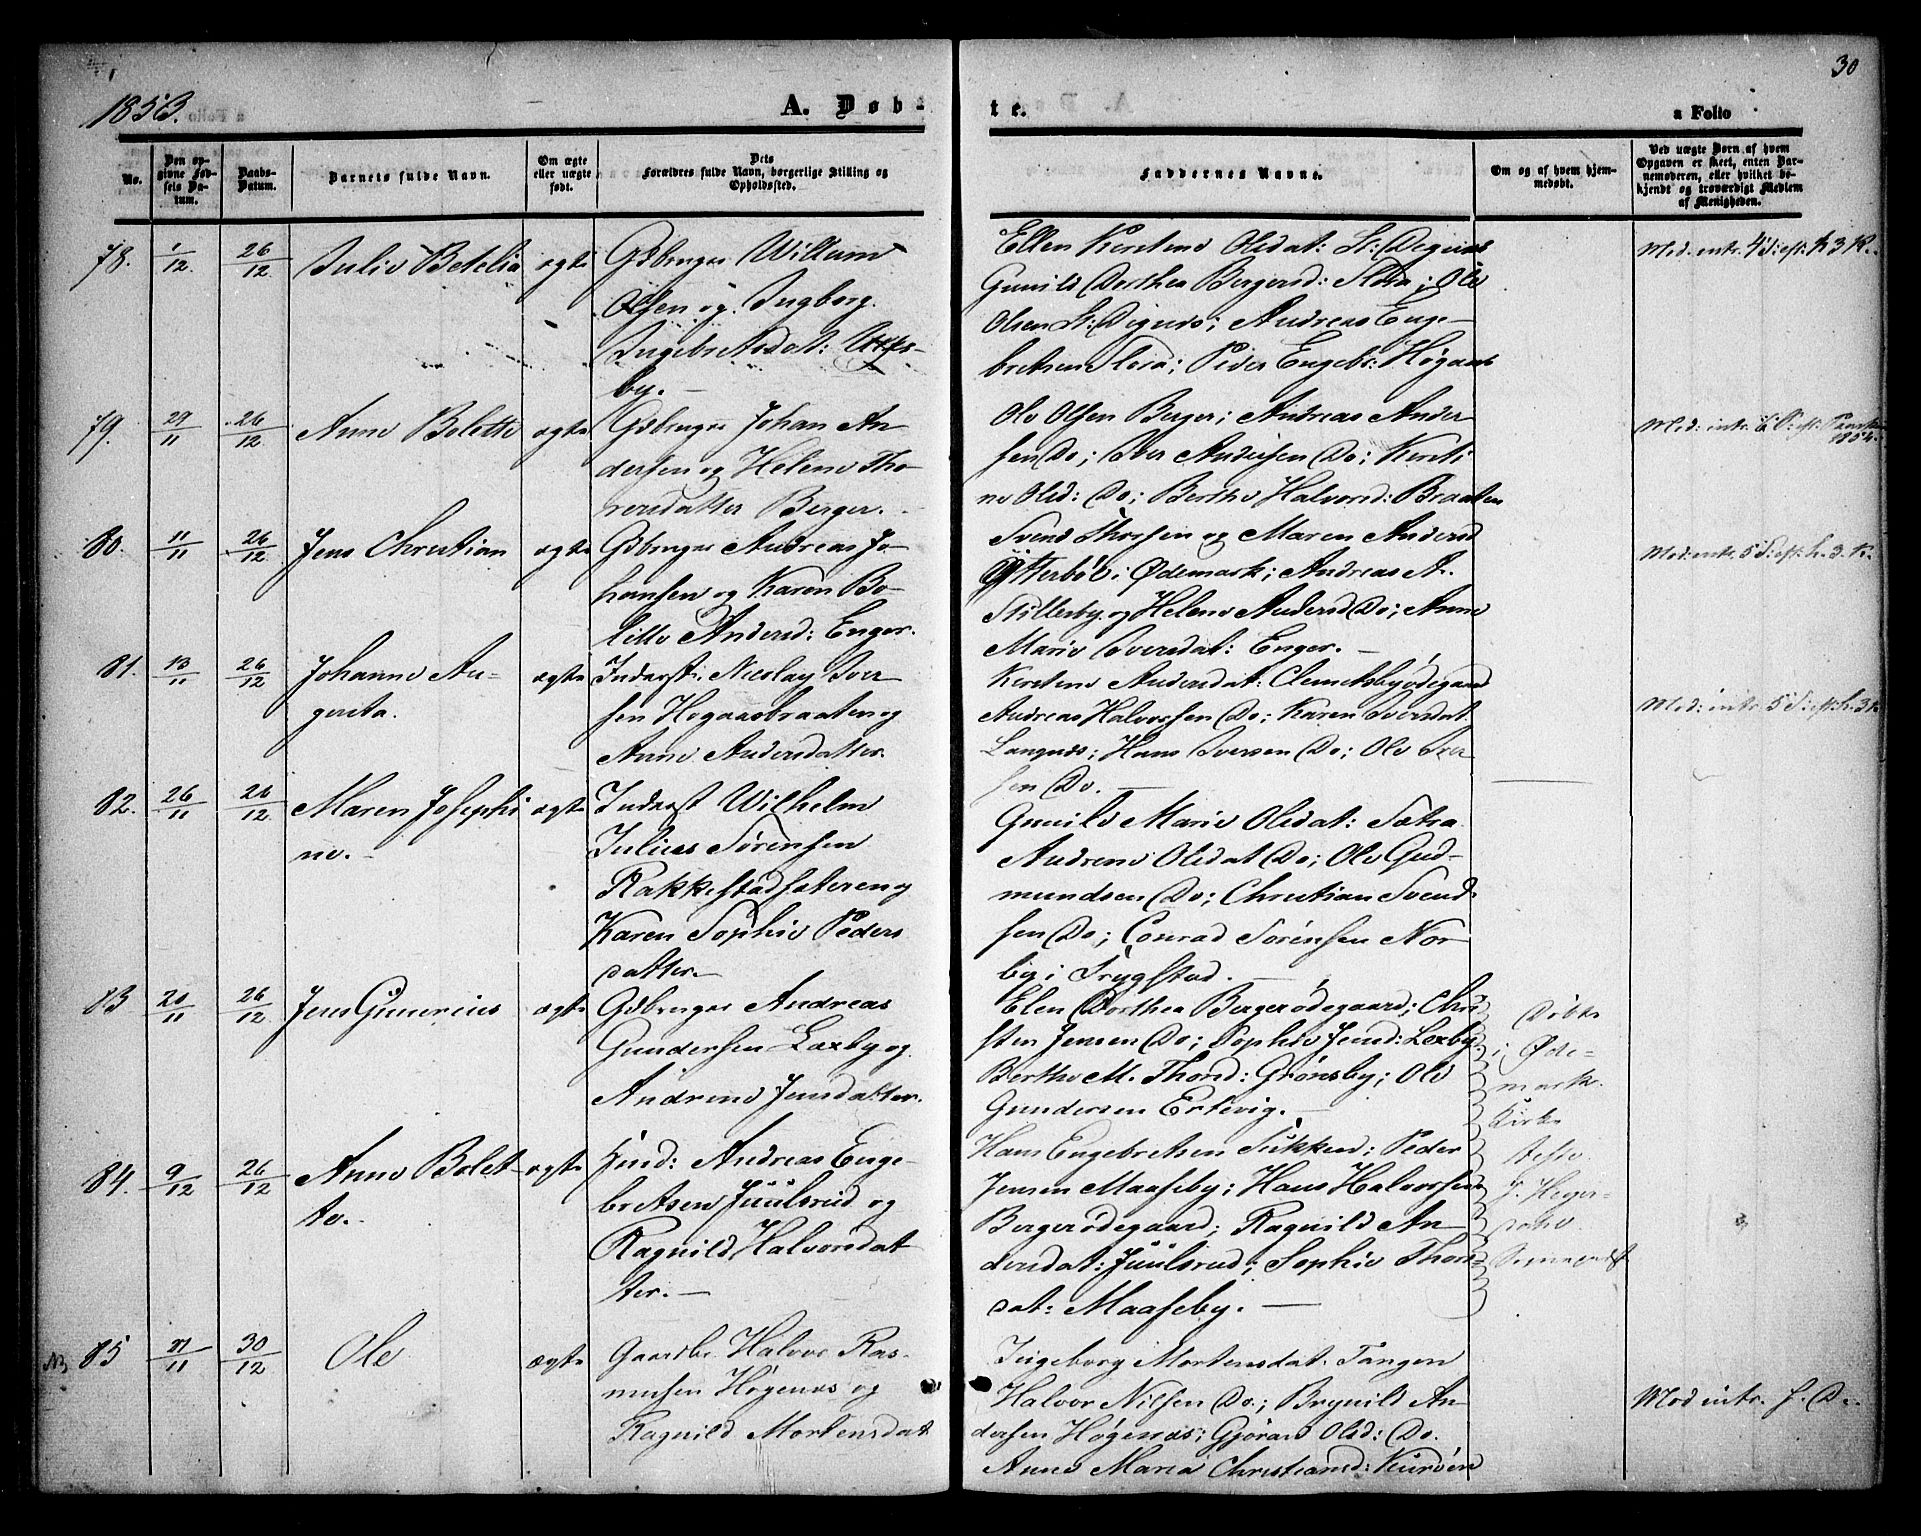 30
1853.
A. Døbte.
a Folio
No.
Den opgivne Fødsels Datum.
Daabs-Datum.
Barnets fulde Navn.
Om ægte eller uægte født.
Dets Forældres fulde Navn, borgerlige Stilling og Opholdssted.
Faddernes Navne.
Om og af hvem hjemmedøbt.
Ved uægte Børn af hvem Opgaven er skeet, enten Barnemoderen, eller hvilket bekjendt og troværdigt Medlem af Menigheden.
78. 1/12 26/12 Julie Betelia ægte
Gdbruger Willum
Olsen og Ingborg
Ingebretsdat:
by. —
Ellen Kirstine Olsdat: St: Dignæs
Gunild Dorthea Bergersd: Slora; Ole
Olsen St: Dignæs; Andreas Enge-
bretsen Slora; Peder Engebr: Høgaas
Mod. intr. 4 S: eft. h 3 K.
79. 29/11 26/12 Anne Bolette ægte
Gdbruger Johan An
dersen og Helene Tho
resdatter Berger.
Ole Olsen Berger; Andreas Ander
sen Do; Iver Andersen Do; Kirsti
ne Olsd: Do; Berthe Halvorsd: Braaten
Mod: intr. 6
1854.
80. 11/11 26/12 Jens Christian ægte
Gdbruger Andreas Jo
hansen og Karen Bo-
lette Andersd: Enger.
Svend Thorsen og Maren Andersd
Ytterbøl i Ødemark; Andreas A.
Stillesby og Helene Andersd Do; Anne
Marie Iversdat: Enger. —
Mod: intr. 5 S: eft. h. 3. K.
81. 13/11 26/12 Johanne Au-
gusta. ægte
Inderst: Nicolay Iver
sen Høgaasbraaten og
Anne Andersdatter.
Kirstine Andersdat: Clemetsbyødegaard
Andreas Halvorsen Do; Karen Iversdat
Langnæs; Hans Iversen Do; Ole Iver
sen Do. —
Mod: intr. 5 S: eft. h. 3 K
82. 26/11 26/12 Maren Josephi
ne. — ægte
Inderst Wilhelm
Julius Sørensen
Rakkestadsæteren og
Karen Sophie Peders
datter. —
Gunild Marie Olsdat: Sætra
Andrene Olsdat Do; Ole Gud-
mundsen Do; Christian Svend
sen Do; Conrad Sørensen Nor-
by i Trygstad. —
83 20/11 26/12 Jens Gunerius ægte
Gdbruger Andreas
Gundersen Laxby og
Andrine Jensdatter.
Elen Dorthea Bergerødegaard; Chri
sten Jensen Do; Sophie Jensd: Laxby
Berthe M. Thord: Grønsby; Ole
Gundersen Ertevig. —
Døbt
i Øde-
mark.
Kirke
84. 9/12 26/12 Anne Bolet-
te. — ægte
Andreas Enge-
bretsen Juulsrud og
Ragnild Halvorsdat
ter. —
Hans Engebretsen Sukken; Peder
Jensen Maaseby; Hans Halvorsen
Bergerødegaard; Ragnild An
dersdat: Juulsrud; Sophie Thors-
dat: Maaseby. —
NB 85 /11 30/12 Ole ægte
Gaardbr. Halvor Ras-
mussen Høgenæs og
Ragnild Mortensdat
Ingeborg Mortensdat. Tangen
Halvor Nilsen Do.; Brynild An
dersen Høgenæs; Gjøran Olsd: Do.
Anne Maria Christiansd: Kurøen
Mod intr. f. D.